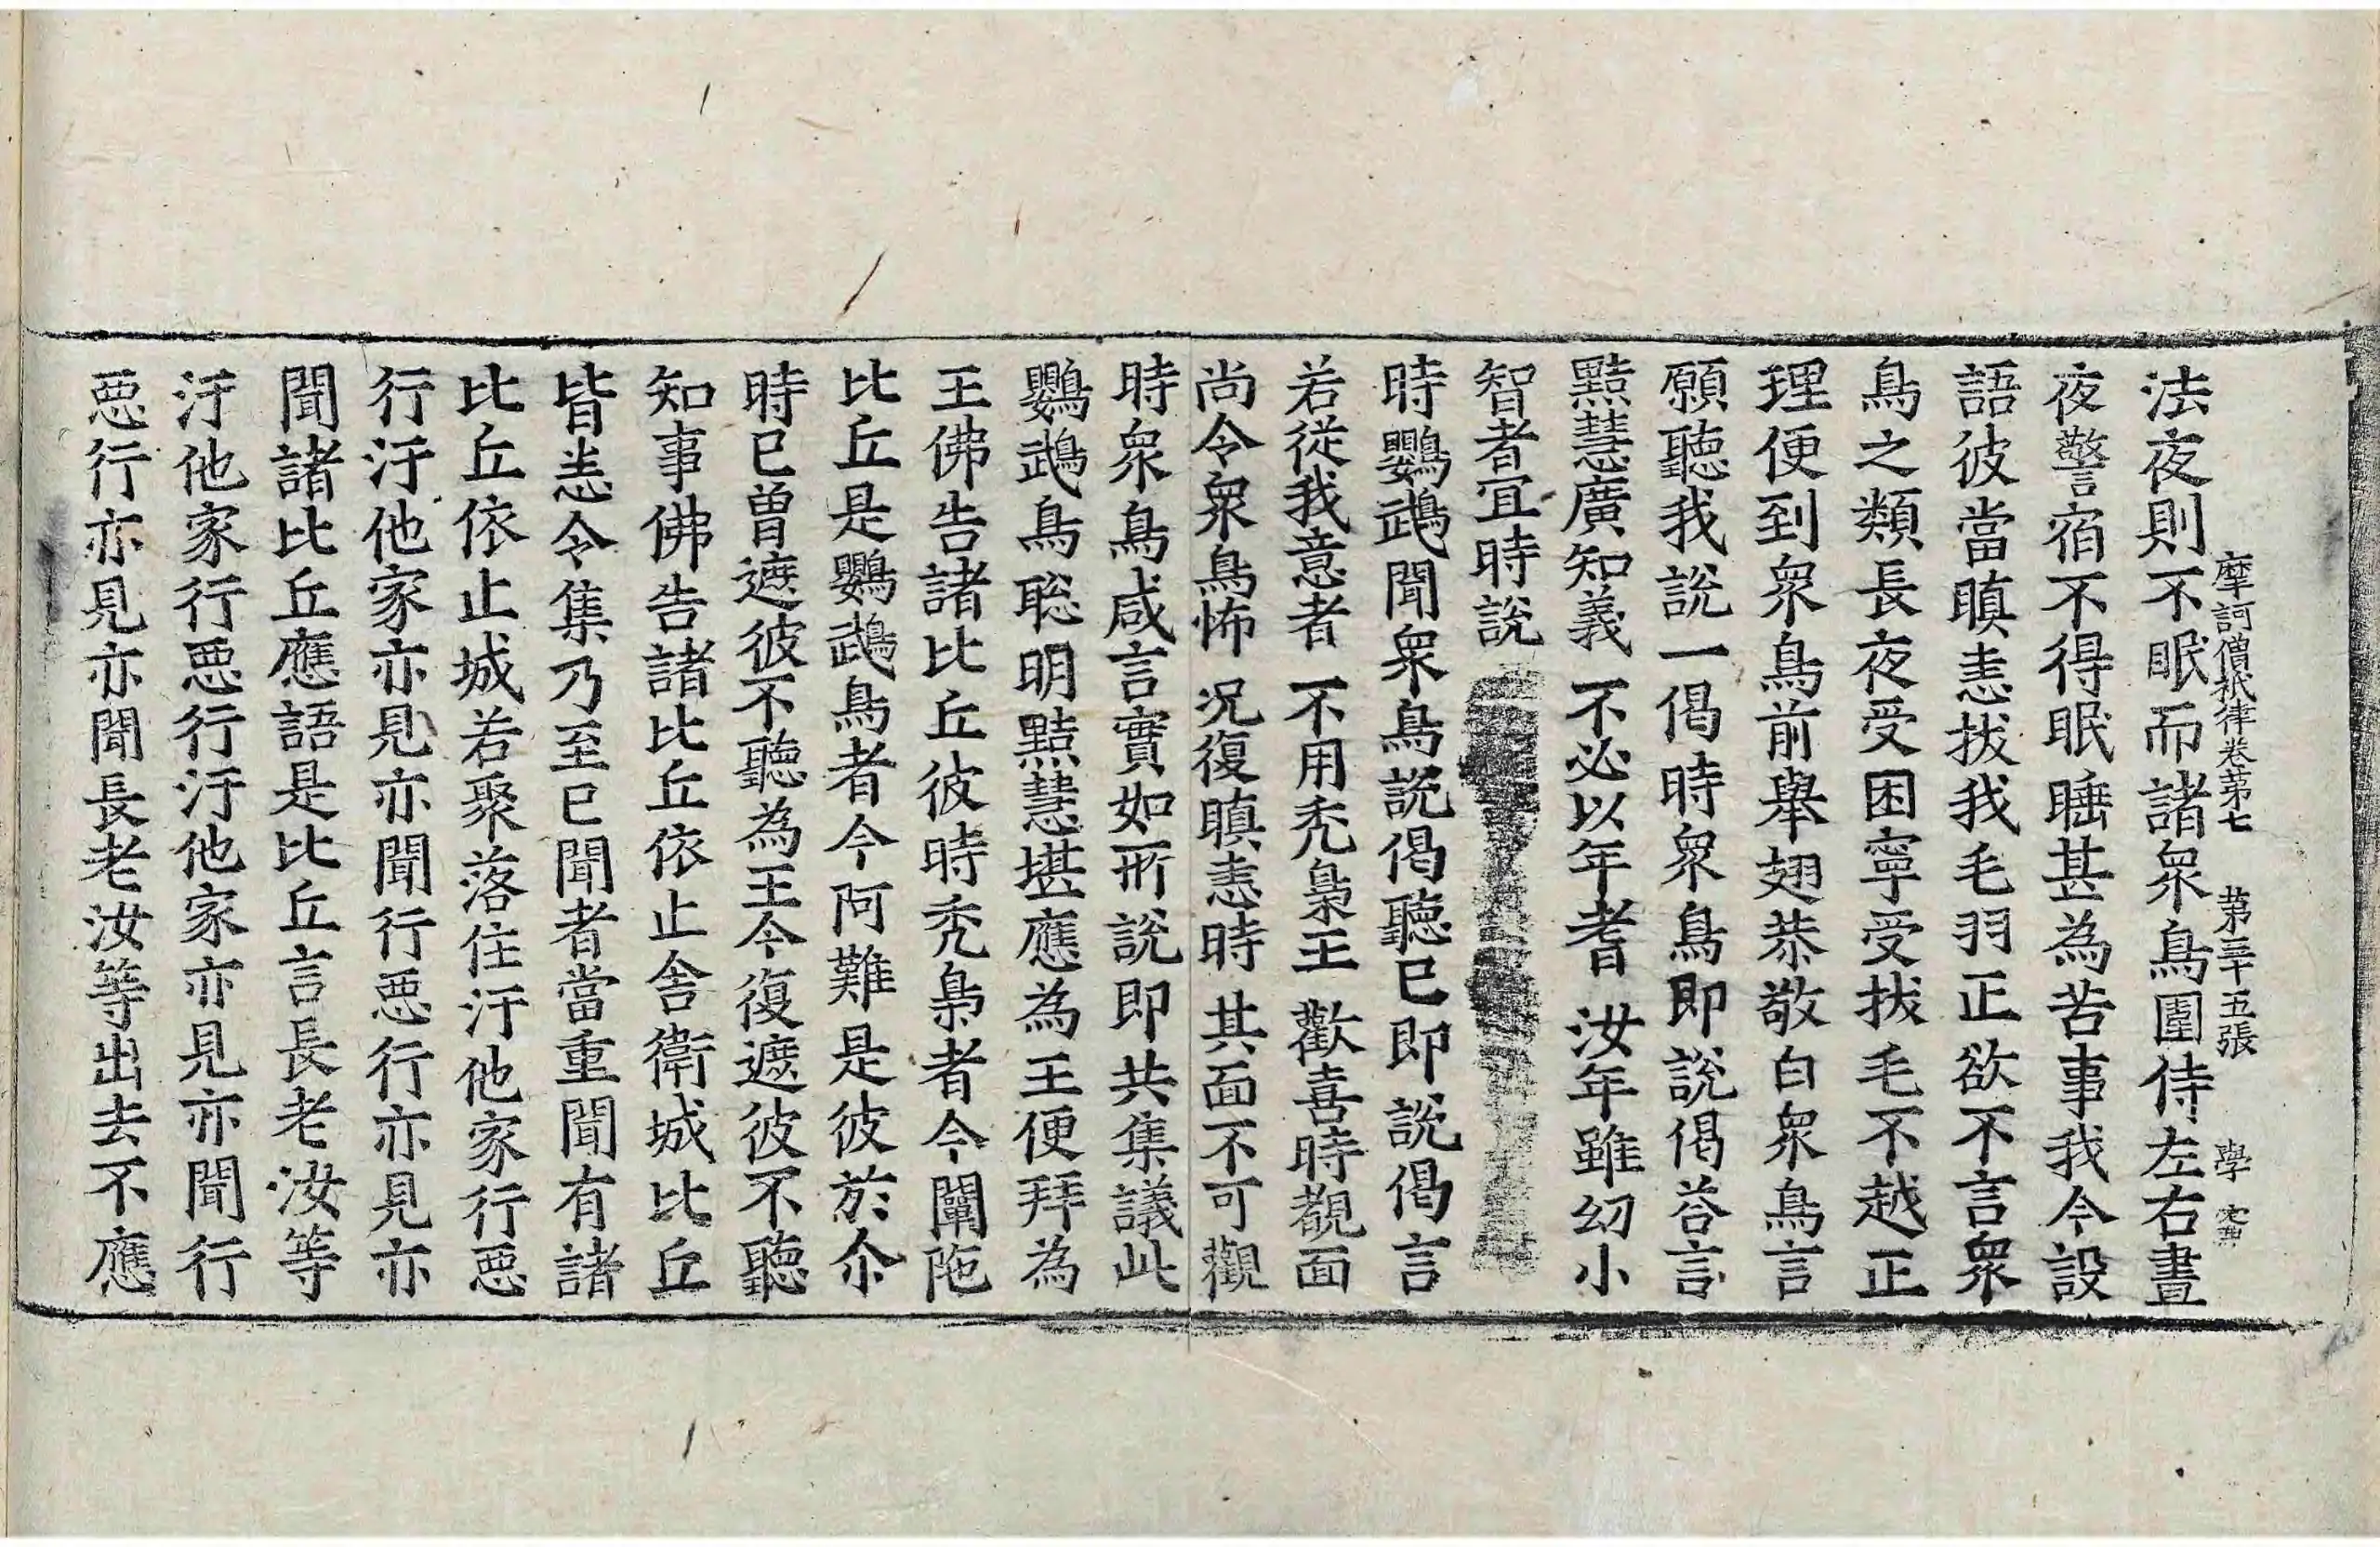 摩訶僧祇律卷第七 第三十五張 學
法夜則不眠而諸衆鳥圍侍左右晝
夜警宿不得眠睡甚為苦事我今設
語彼當瞋恚拔我毛羽正欲不言衆
鳥之類長夜受困寧受拔毛不越正
理便到衆鳥前舉翅恭敬白衆鳥言
願聽我説一偈時衆鳥即説偈荅言
黠慧廣知義 不必以年耆 汝年雖幼小
智者宜時説
時鸚鵡聞衆鳥説偈聽已即説偈言
若從我意者 不用禿梟王 歡喜時覩面
尚令衆鳥怖 况復瞋恚時 其面不可觀
時衆鳥咸言實如所説即共集議此
鸚鵡鳥聡明黠慧堪應為王便拜為
王佛告諸比丘彼時禿梟者今闡陁
比丘是鸚鵡鳥者今阿難是彼於尒
時已曽遮彼不聽為王今復遮彼不聽
知事佛告諸比丘依止舎衛城比丘
皆悉令集乃至已聞者當重聞有諸
比丘依止城若聚落住汙他家行惡
行汙他家亦見亦聞行惡行亦見亦
聞諸比丘應語是比丘言長老汝等
汙他家行惡行汙他家亦見亦聞行
惡行亦見亦聞長老汝等出去不應